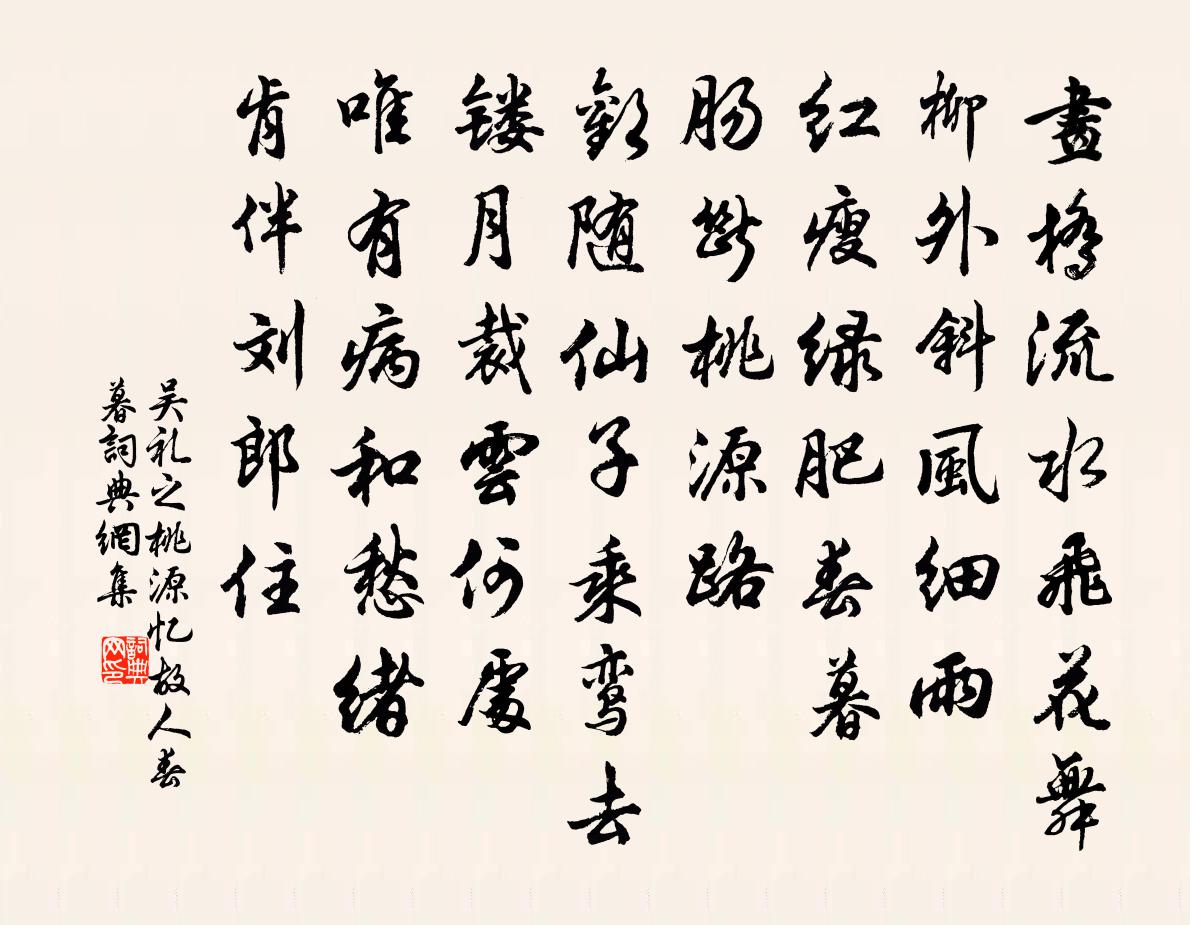 畫橋流水飛花舞
柳外斜風細雨
红瘦绿肥春暮
肠斷桃源路
歡随仙子乘鸾去
镂月裁雲何處
唯有病和愁绪
肯伴刘郎住
吴礼之桃源忆故人春
暮詞典網集
詞典
网印